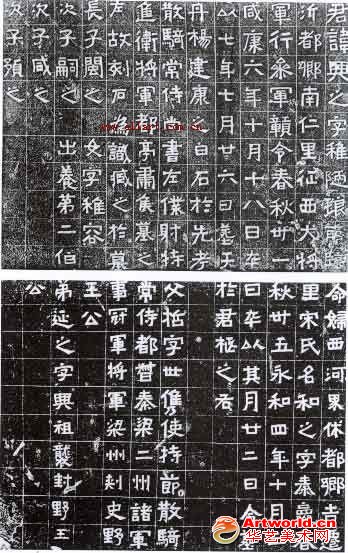 君諱興之字稚陋琅耶臨
沂都鄉南仁里征西大將
軍行參軍贛令春秋卅一
咸康六年十月十八日卒
以七年七月廿六日塟于
丹楊建康之白石於先考
散騎常侍尚書左僕射特
進衛將軍都亭肅侯墓之
左故刻石為識臧之於墓
長子閩之 女字稚容
次子嗣之 出養第二伯
次子咸之
次子預之
命婦西河界休都鄉吉遷
里宋氏名和之字秦嬴春
秋卅五永和四年十月三
日卒以其月廿二日合塟
於君柩之右
父哲字世儁使持節散騎
常侍都督秦梁二州諸軍
事冠軍將軍梁州刺史野
王公
弟延之字興祖襲封野王
公
Artworld.cn
华艺美术网